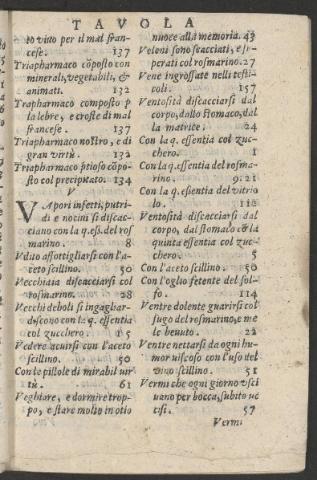 TAVOLA
to vino per il mal fran-
cese. 137
Triapharmaco cõposto con
minerali, vegetabili, &
animati. 132
Trapharmaco composto p
la lebre, e croste di mal
francese. 137
Triapharmaco nostro, e di
gran virtù. 132
Triapharmaco ptioso cõpo-
sto col precipitato. 134
V
VApori infetti, putri-
di e nociui si discac-
ciano con la q. es. del ros
marino. 8
Vdito assottigliarsi con l'a-
ceto scillino. 50
Vecchiaia discacciarsi col
rosmarino. 28
Vecchi deboli si ingagliar-
discono con la q. essentia
col zucchero. 15
Vedere acuirsi con l'aceto
scillino. 50
Con le pillole di mirabil uir
tù. 61
Veghiare, e dormire trop-
po, e stare molto in otio
nuoce alla memoria. 43
Veleni sono scacciati, e su-
perati col rosmarino. 27
Vene ingrossate nelli testi-
coli. 157
Ventosità discacciarsi dal
corpo, dallo stomaco, dal
la matrice. 24
Con la q. essentia col zuc-
chero. 1
Con la q. essentia del rosma-
rino. 9. 21
Con la q. essentia del vitrio
lo. 112
Ventosità discacciarsi dal
corpo, dal stomaco cõ la
quinta essentia col zuc-
chero. 5
Con l'aceto scillino. 50
Con l'oglio fetente del sol-
fo. 114
Ventre dolente guarirsi col
sugo del rosmarino, e me
le beuuto. 22
Ventre nettarsi da ogni hu-
mor uiscoso con l'uso del
vino scillino. 51
Vermi che ogni giorno vsci
uano per bocca, subito uc
cisi. 57
Vermi